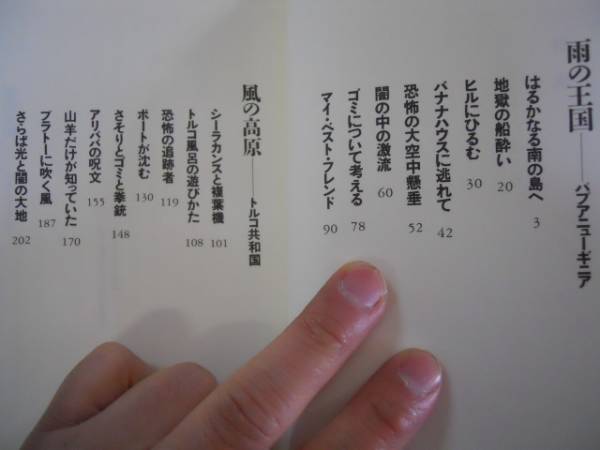 雨の王国――パプアニューギニア
はるかなる南の島へ 3
地獄の船酔い 20
ヒルにひるむ 30
バナナハウスに逃れて 42
恐怖の大空中懸垂 52
闇の中の激流 60
ゴミについて考える 78
マイ・ベスト・フレンド 90
風の高原――トルコ共和国
シーラカンスと複葉機 101
トルコ風呂の遊びかた 108
恐怖の追跡者 119
ボートが沈む 130
さそりとゴミと拳銃 148
アリババの呪文 155
山羊だけが知っていた 170
プラトーに吹く風 187
さらば光と闇の大地 202